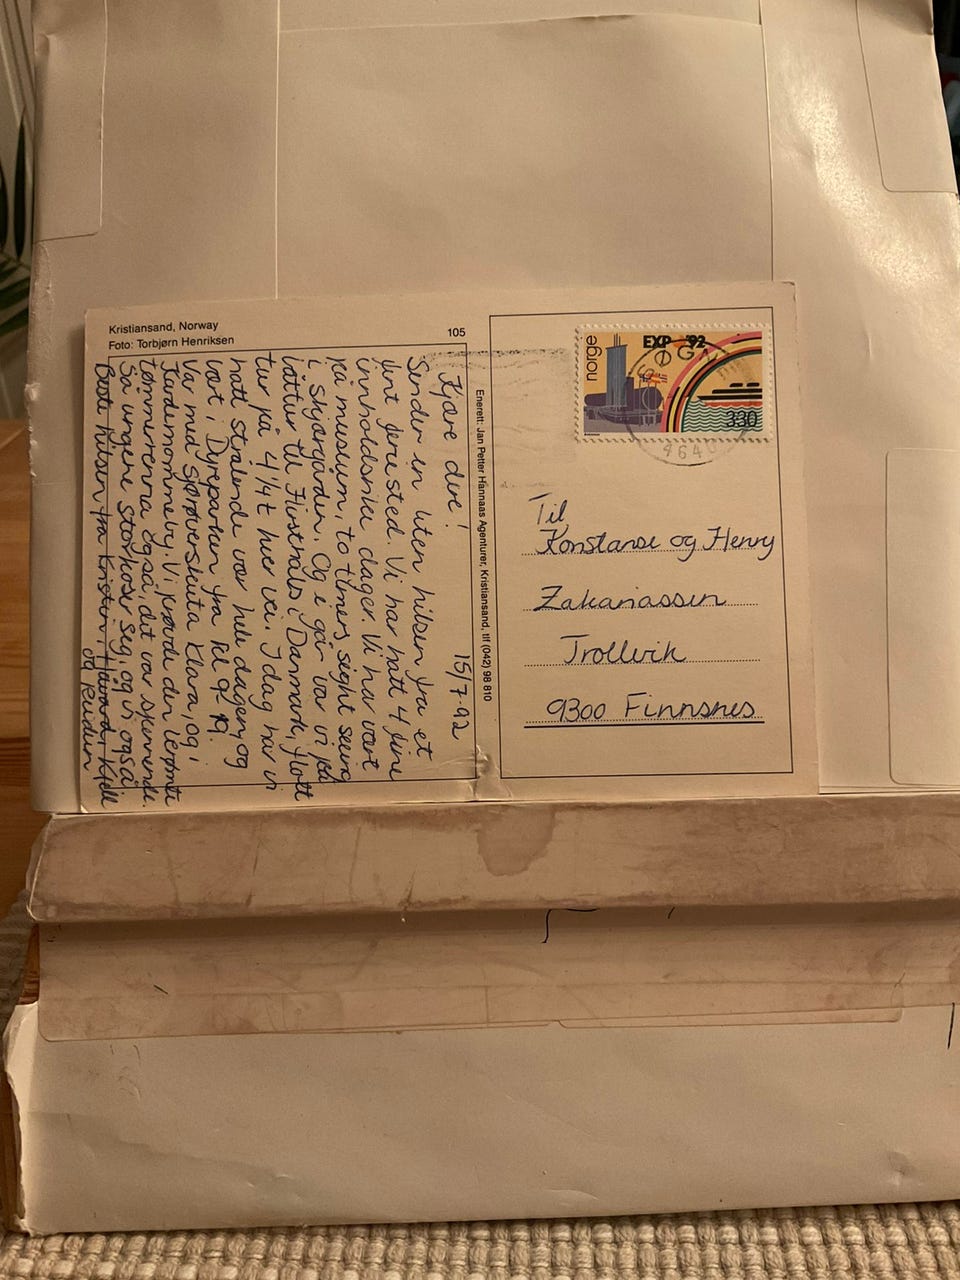 Kristiansand, Norway
Foto: Torbjørn Henriksen
105
Kjære dere! 15/7-92
Sender en liten hilsen fra et
fint feriested. Vi har hatt 4 fine
innholdsrike dager. Vi har vært
på museum, to timers sight seeing
i skjærgården. Og i går var vi på
lättur til Hirtshals i Danmark, flott
tur på 4 1/4 t hver vei. I dag har vi
hatt strålende vær hele dagen, og
vært i Dyreparken fra kl 9 - 19.
Var med sjørøverskuta Klara, og i
Kardemommeby. Vi prøvde den berømte
tømmerrenna også, det var spennende.
Så ungene storkoser seg, og vi også.
Beste hilsen fra Kristin, Håvard, Kjell
og Reidun
Enerett: Jan Petter Hannaas Agenturer, Kristiansand, tlf (042) 98 810
norge
EXP '92
330
464
Til
Konstanse og Henry
Zakariassen
Trollvik
9300 Finnsnes